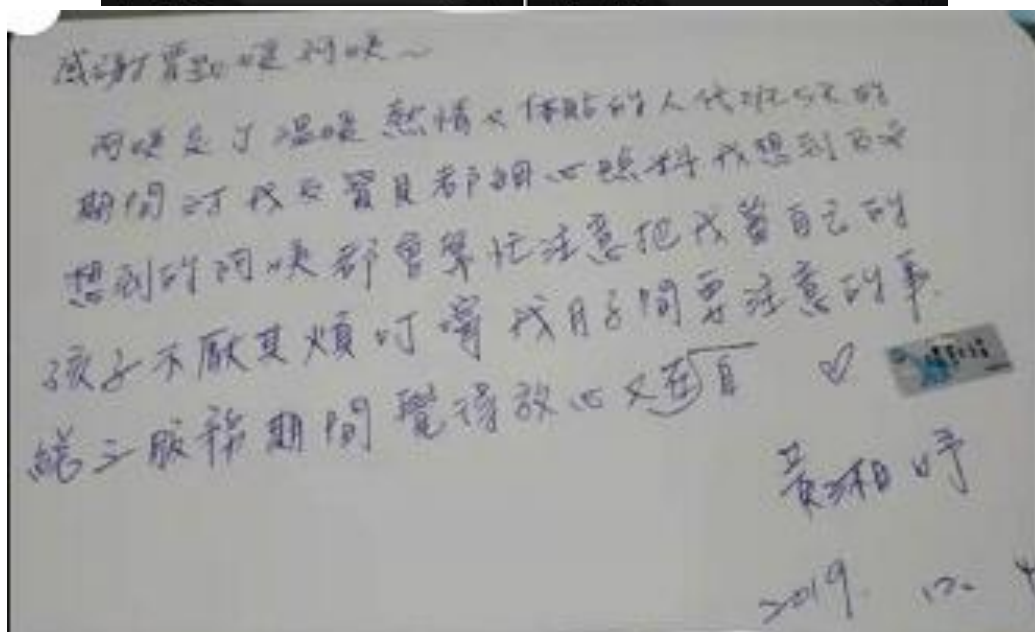 感謝賀勤 阿姨~
阿姨是个溫暖熱情又体貼的人代班5天的
期間对我及寶貝都細心照料我想到及沒
想到的阿姨都會幫忙注意把我當自己的
孩子不厭其煩叮嚀我月子間要注意的事
總之服務期間覺得放心又在自
♡
黃湘妤
2019. 12. 4